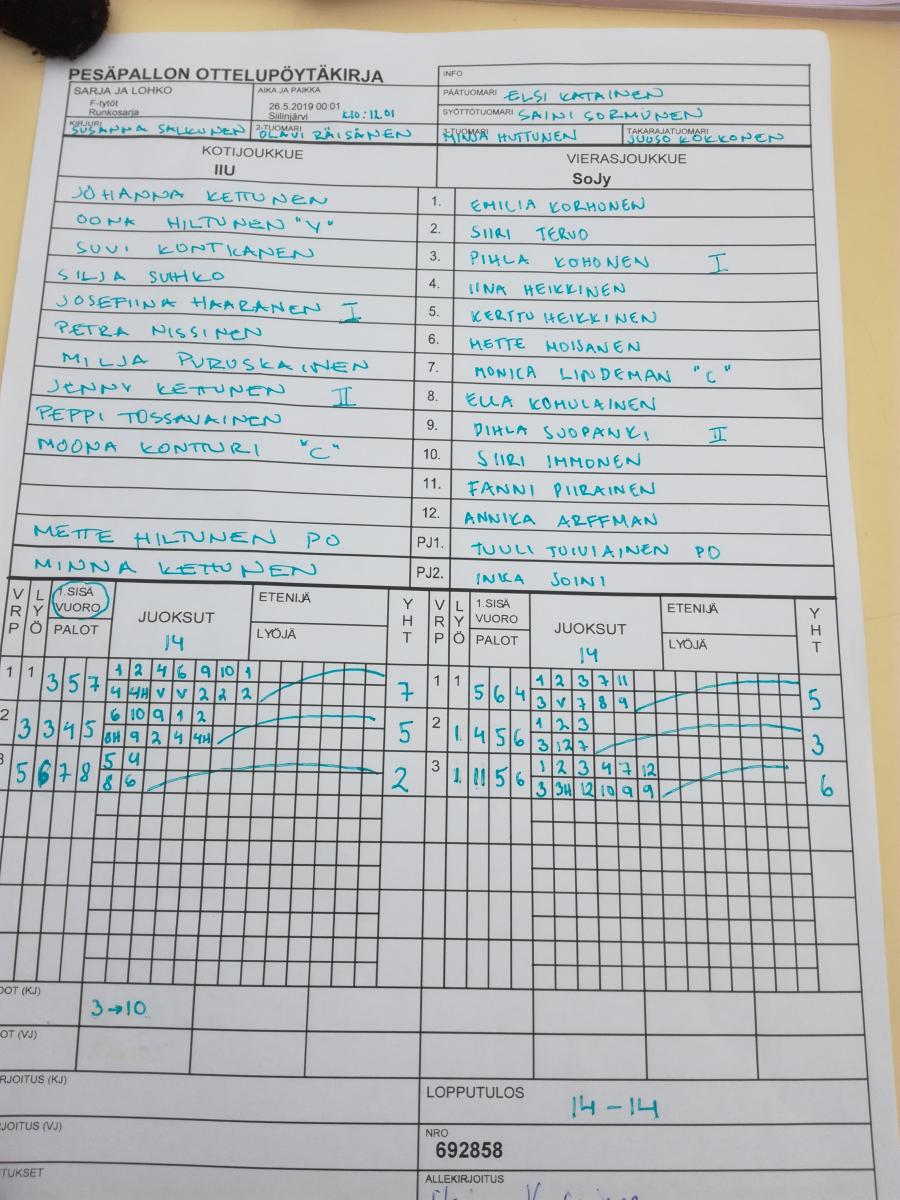 PESÄPALLON OTTELUPÖYTÄKIRJA
INFO
SARJA JA LOHKO
F-tytöt
Runkosarja
AIKA JA PAIKKA
26.5.2019 00:01
Siilinjärvi KLO: 12.01
PÄÄTUOMARI ELSI KATAINEN
SYÖTTÖTUOMARI SAINI SORMUNEN
KIRJURI SUSANNA SALKUNEN
2-TUOMARI OLAVI RÄISÄNEN
3-TUOMARI MINJA HUTTUNEN
TAKARAJATUOMARI JUUSO KOKKONEN
KOTIJOUKKUE
IIU
VIERASJOUKKUE
SoJy
JOHANNA KETTUNEN 1. EMILIA KORHONEN
OONA HILTUNEN "V" 2. SIIRI TERVO
SUVI KONTKANEN 3. PIHLA KOHONEN I
SILJA SUHKO 4. IINA HEIKKINEN
JOSEFIINA HAARANEN I 5. KERTTU HEIKKINEN
PETRA NISSINEN 6. METTE MOISANEN
MILJA PURUSKAINEN 7. MONICA LINDEMAN "C"
JENNY KETTUNEN II 8. ELLA KOMULAINEN
PEPPI TOSSAVAINEN 9. PIHLA SUOPANKI II
MOONA KONTTURI "C" 10. SIIRI IMMONEN
11. FANNI PIIRAINEN
12. ANNIKA ARFFMAN
METTE HILTUNEN PO PJ1. TUULI TOIVIAINEN PO
MINNA KETTUNEN PJ2. INKA SOINI
VRP LYÖ 1.SISÄ VUORO PALOT JUOKSUT 14 ETENIJÄ LYÖJÄ YHT VRP LYÖ 1.SISÄ VUORO PALOT JUOKSUT 14 ETENIJÄ LYÖJÄ YHT
1 1 3 5 7 1 2 4 6 9 10 1 7 1 1 5 6 4 1 2 3 7 11 5
4 4H V V 2 2 2 3 V 7 8 9
2 3 3 4 5 6 10 9 1 2 5 2 1. 4 5 6 1 2 3 3
8H 9 2 4 4H 3 12 7
3 5 6 7 8 5 4 2 3 1. 11 5 6 1 2 3 4 7 12 6
8 6 3 3H 12 10 9 9
DOT (KJ) 3→10
OT (VJ)
RJOITUS (KJ)
LOPPUTULOS 14 - 14
RJOITUS (VJ)
NRO
692858
TUKSET
ALLEKIRJOITUS